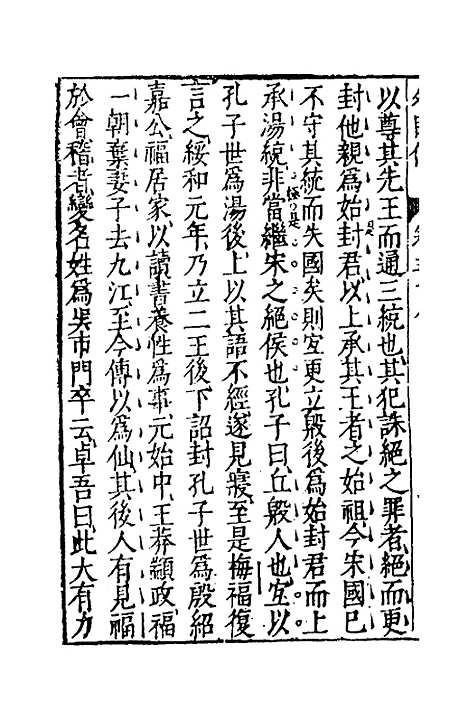 以尊其先王而通三統也其犯誅絕之罪者絕而更
封他親爲始封君以上承其王者之始祖今宋國已
不守其統而失國矣則宜更立殷後爲始封君而上
承湯統非當繼宋之絕侯也孔子曰丘殷人也宜以
孔子世爲湯後上以其語不經遂見寢至是梅福復
言之綏和元年乃立二王後下詔封孔子世爲殷紹
嘉公福居家以讀書養性爲事元始中王莽顓政福
一朝棄妻子去九江至今傳以爲仙其後人有見福
於會稽者變名姓爲吳市門卒云卓吾曰此大有力